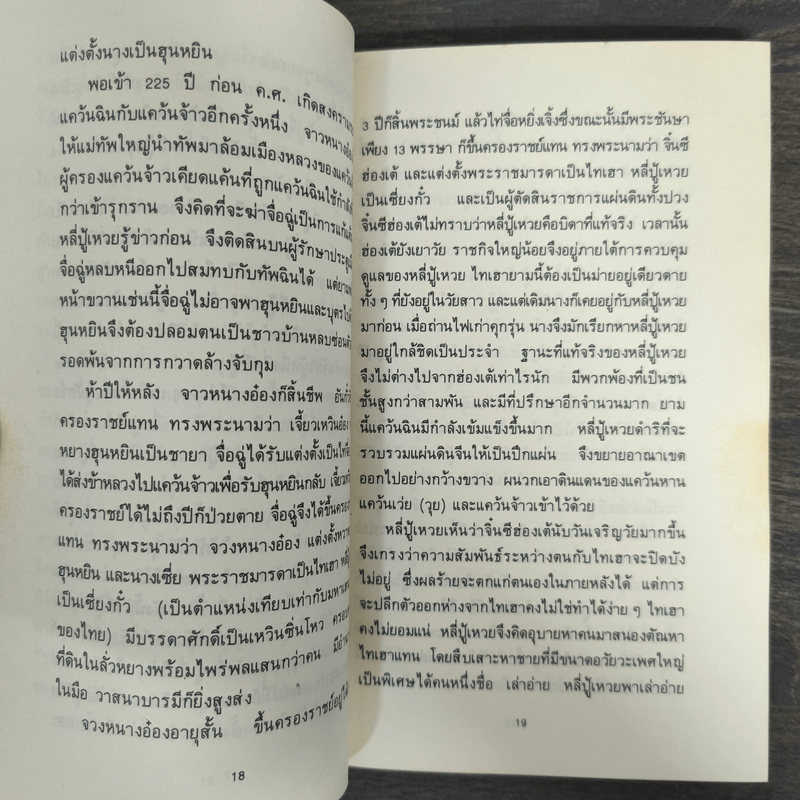 แต่งตั้งนางเป็นฮุนหยิน
พอเข้า 225 ปี ก่อน ค.ศ. เกิดสงคราม
แคว้นฉินกับแคว้นจ้าวอีกครั้งหนึ่ง จาวหนางอ๋อง
ให้แม่ทัพใหญ่นำทัพมาล้อมเมืองหลวงของแคว้น
ผู้ครองแคว้นจ้าวเคียดแค้นที่ถูกแคว้นฉินใช้กำลัง
กว่าเข้ารุกราน จึงคิดที่จะฆ่าจื่อฉู่เป็นการแก้แค้น
หลี่ปู้เหวยรู้ข่าวก่อน จึงติดสินบนผู้รักษาประตู
จื่อฉู่หลบหนีออกไปสมทบกับทัพฉินได้ แต่ยาม
หน้าขวานเช่นนี้จื่อฉู่ไม่อาจพาฮุนหยินและบุตรไป
ฮุนหยินจึงต้องปลอมตนเป็นชาวบ้านหลบซ่อนตัว
รอดพ้นจากการกวาดล้างจับกุม
ห้าปีให้หลัง จาวหนางอ๋องก็สิ้นชีพ อันกั๋ว
ครองราชย์แทน ทรงพระนามว่า เจี้ยวเหวินอ๋อง
หยางฮุนหยินเป็นชายา จื่อฉู่ได้รับแต่งตั้งเป็นไทจื่อ
ได้ส่งข้าหลวงไปแคว้นจ้าวเพื่อรับฮุนหยินกลับ เจี้ยว
ครองราชย์ได้ไม่ถึงปีก็ป่วยตาย จื่อฉู่จึงได้ขึ้นครอง
แทน ทรงพระนามว่า จวงหนางอ๋อง แต่งตั้งหวา
ฮุนหยิน และนางเซี่ย พระราชมารดาเป็นไทเฮา หลี่ปู้
เป็นเซี่ยงกั๋ว (เป็นตำแหน่งเทียบเท่ากับมหา
ของไทย) มีบรรดาศักดิ์เป็นเหวินซิ่นโหว ครอบ
ที่ดินในลั่วหยางพร้อมไพร่พลแสนกว่าคน มีอำนาจ
ในมือ วาสนาบารมีก็ยิ่งสูงส่ง
จวงหนางอ๋องอายุสั้น ขึ้นครองราชย์อยู่ได้
18
3 ปีก็สิ้นพระชนม์ แล้วไท่จื่อหยิ่งเจิ้งซึ่งขณะนั้นมีพระชันษา
เพียง 13 พรรษา ก็ขึ้นครองราชย์แทน ทรงพระนามว่า จิ๋นซี
ฮ่องเต้ และแต่งตั้งพระราชมารดาเป็นไทเฮา หลี่ปู้เหวย
เป็นเซี่ยงกั๋ว และเป็นผู้ตัดสินราชการแผ่นดินทั้งปวง
จิ๋นซีฮ่องเต้ไม่ทราบว่าหลี่ปู้เหวยคือบิดาที่แท้จริง เวลานั้น
ฮ่องเต้ยังเยาวัย ราชกิจใหญ่น้อยจึงอยู่ภายใต้การควบคุม
ดูแลของหลี่ปู้เหวย ไทเฮายามนี้ต้องเป็นม่ายอยู่เดียวดาย
ทั้ง ๆ ที่ยังอยู่ในวัยสาว และแต่เดิมนางก็เคยอยู่กับหลี่ปู้เหวย
มาก่อน เมื่อถ่านไฟเก่าคุกรุ่น นางจึงมักเรียกหาหลี่ปู้เหวย
มาอยู่ใกล้ชิดเป็นประจำ ฐานะที่แท้จริงของหลี่ปู้เหวย
จึงไม่ต่างไปจากฮ่องเต้เท่าไรนัก มีพวกพ้องที่เป็นชน
ชั้นสูงกว่าสามพัน และมีที่ปรึกษาอีกจำนวนมาก ยาม
นี้แคว้นฉินมีกำลังเข้มแข็งขึ้นมาก หลี่ปู้เหวยดำริที่จะ
รวบรวมแผ่นดินจีนให้เป็นปึกแผ่น จึงขยายอาณาเขต
ออกไปอย่างกว้างขวาง ผนวกเอาดินแดนของแคว้นหาน
แคว้นเว่ย (วุย) และแคว้นจ้าวเข้าไว้ด้วย
หลี่ปู้เหวยเห็นว่าจิ๋นซีฮ่องเต้นับวันเจริญวัยมากขึ้น
จึงเกรงว่าความสัมพันธ์ระหว่างตนกับไทเฮาจะปิดบัง
ไม่อยู่ ซึ่งผลร้ายจะตกแก่ตนเองในภายหลังได้ แต่การ
จะปลีกตัวออกห่างจากไทเฮาคงไม่ใช่ทำได้ง่าย ๆ ไทเฮา
คงไม่ยอมแน่ หลี่ปู้เหวยจึงคิดอุบายหาคนมาสนองตัณหา
ไทเฮาแทน โดยสืบเสาะหาชายที่มีขนาดอวัยวะเพศใหญ่
เป็นพิเศษได้คนหนึ่งชื่อ เล่าอ่าย หลี่ปู้เหวยพาเล่าอ่าย
19